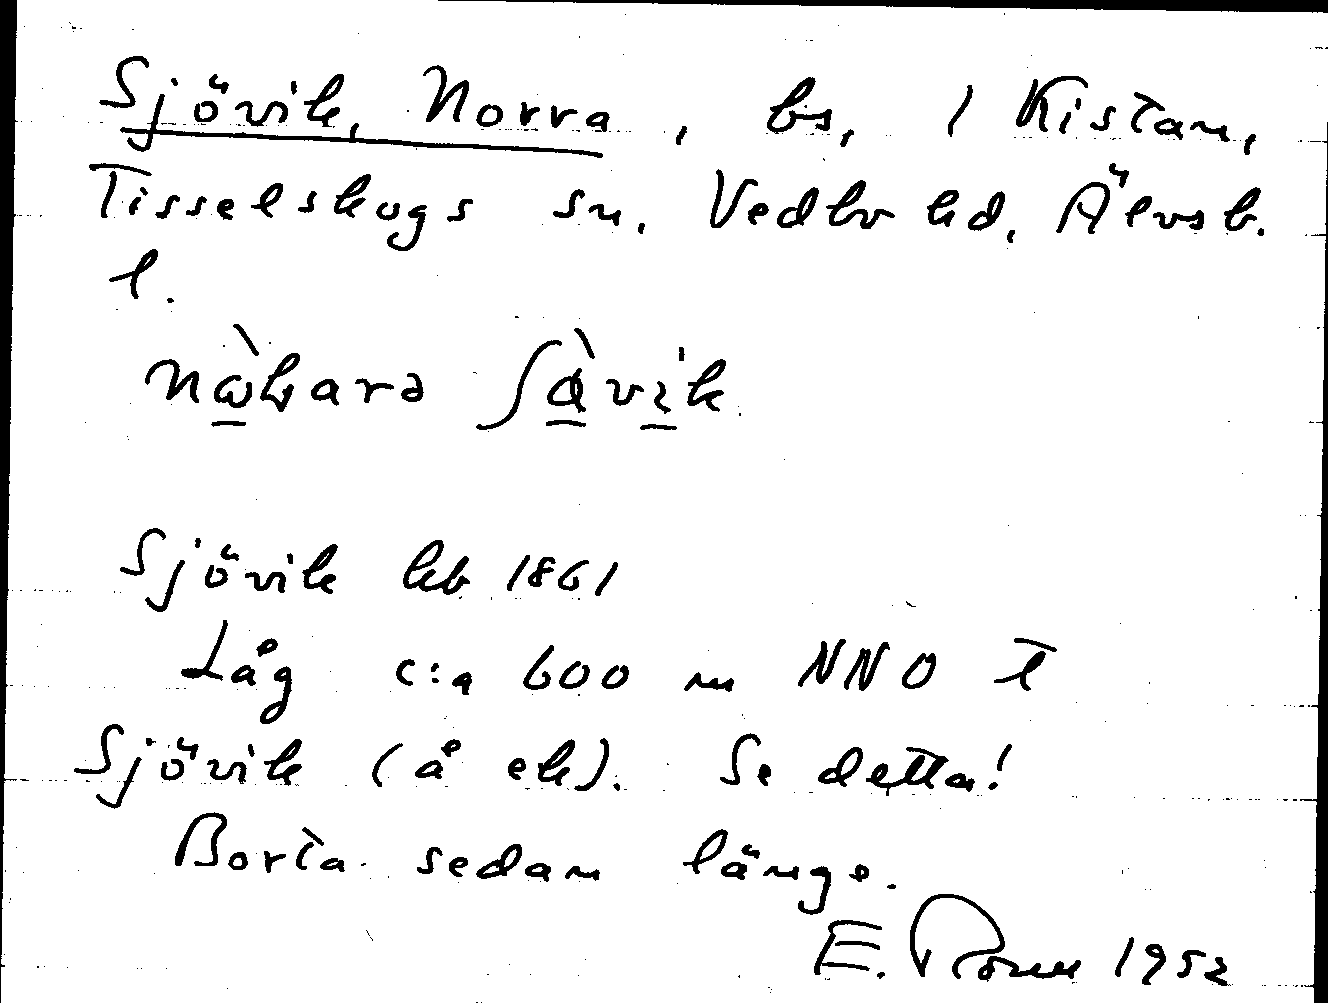 Sjövik, Norra, bs, i Kistan,
Tisselskogs sn. Vedbo hd, Älvsb.
l.
Sjövik hkb 1861
Låg c:a 600 m NNO t
Sjövik (å ek). Se detta!
Borta sedan länge.
E. 1952